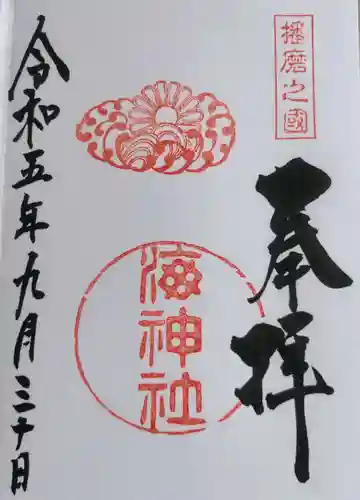 播磨之國
奉拝
海神社
令和五年九月三十日